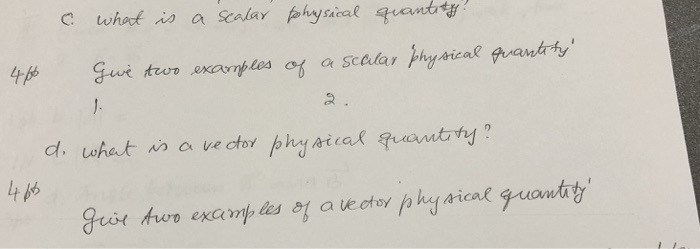 c. what is a scalar physical quantity?
4pb Give two examples of a scalar physical quantity'
1. 2.
d. what is a vector physical quantity?
4pb
Give two examples of a vector physical quantity'